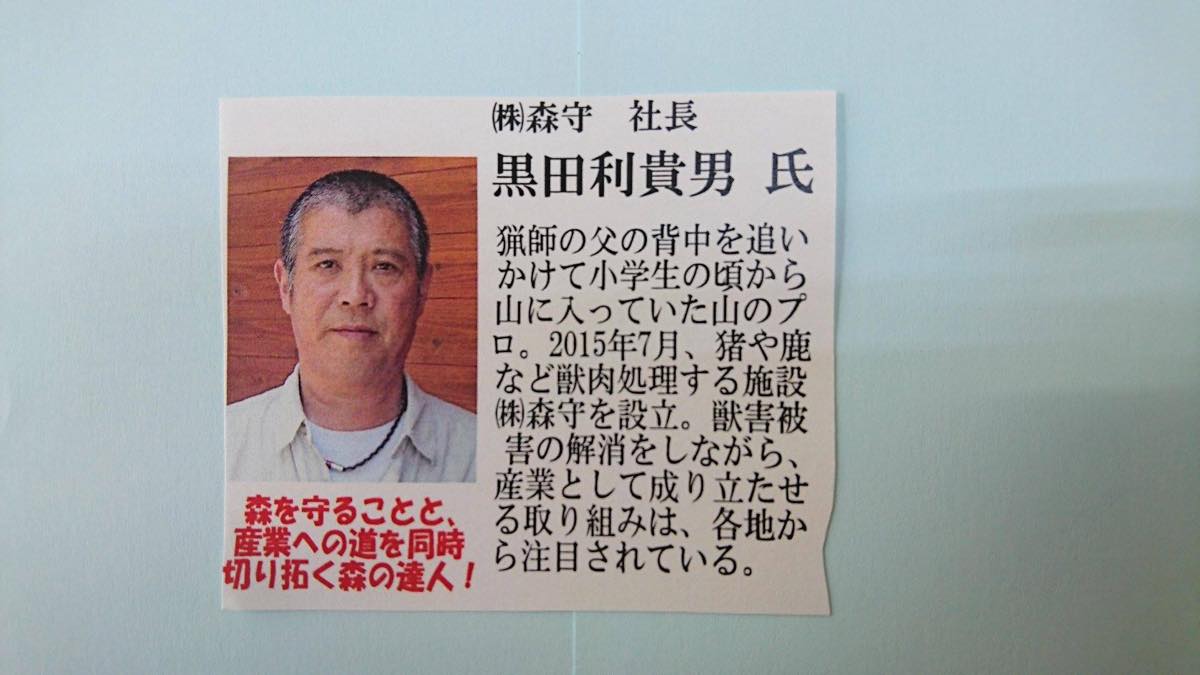 ㈱森守　社長
黒田利貴男 氏
猟師の父の背中を追い
かけて小学生の頃から
山に入っていた山のプ
ロ。2015年7月、猪や鹿
など獣肉処理する施設
㈱森守を設立。獣害被
害の解消をしながら、
産業として成り立たせ
る取り組みは、各地か
ら注目されている。
森を守ることと、
産業への道を同時
切り拓く森の達人！